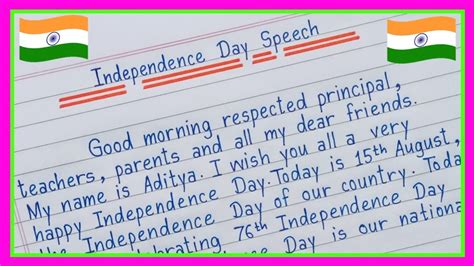 Independence Day Speech
Good morning respected principal,
teachers, parents and all my dear friends.
My name is Aditya. I wish you all a very
happy Independence Day. Today is 15th August,
the Independence Day of our country. Today
celebrating 76th Independence Day
Day is our nationa